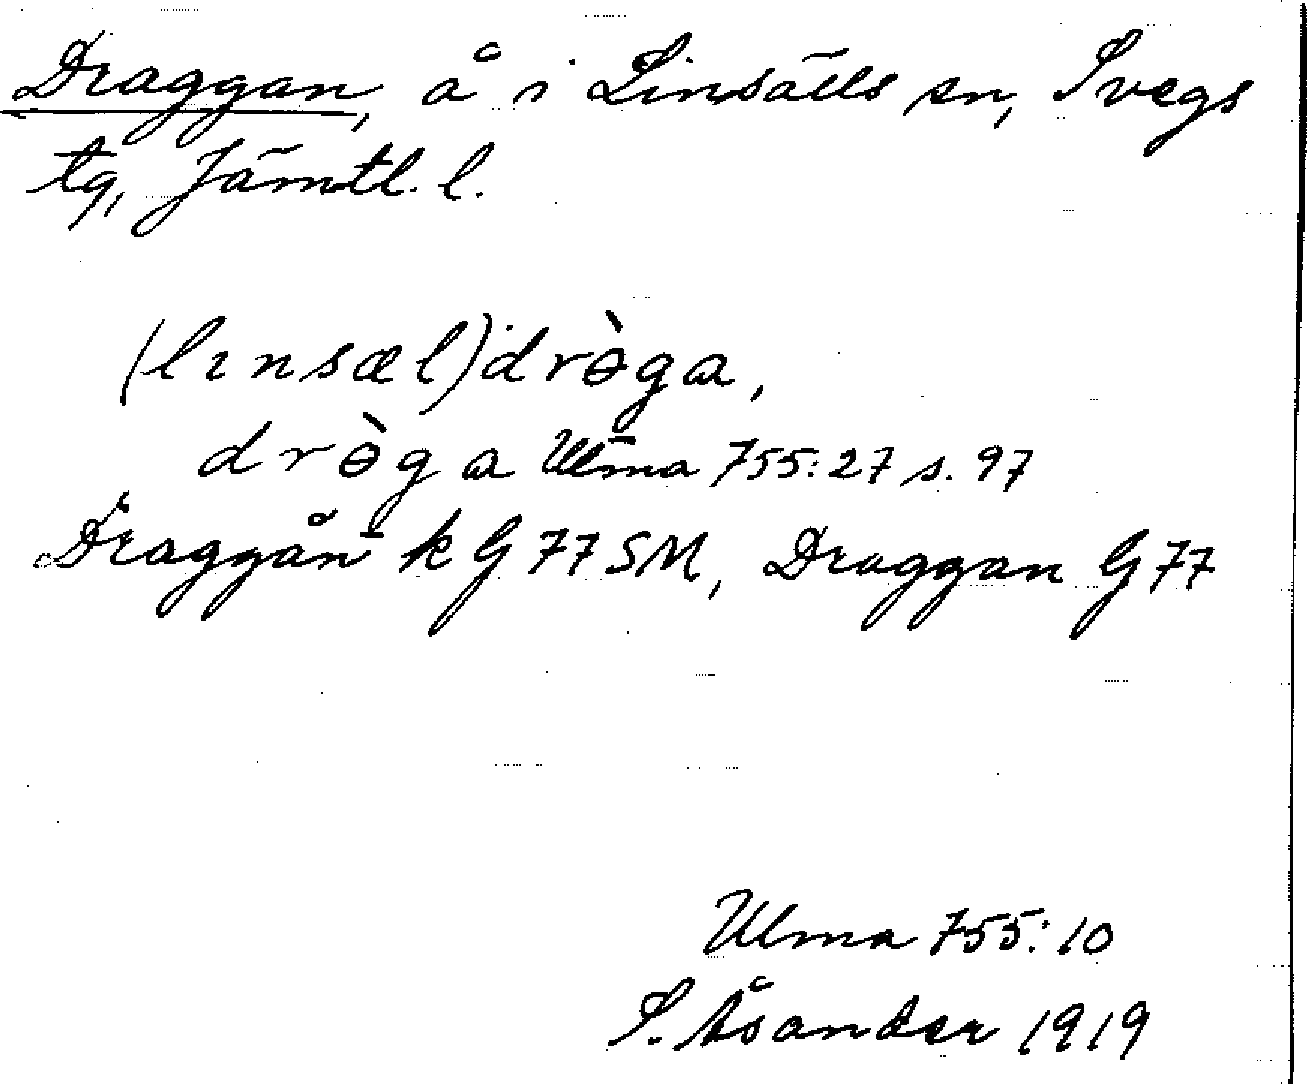 Draggan, å i Linsälls sn, Svegs
tg, Jämtl. l.
(lınsæl)drɵ̀ga,
drɵ̀ga Ulma 755:27 s. 97
Draggån k G 77 SM, Draggan G 77
Ulma 755:10
S. Åsander 1919